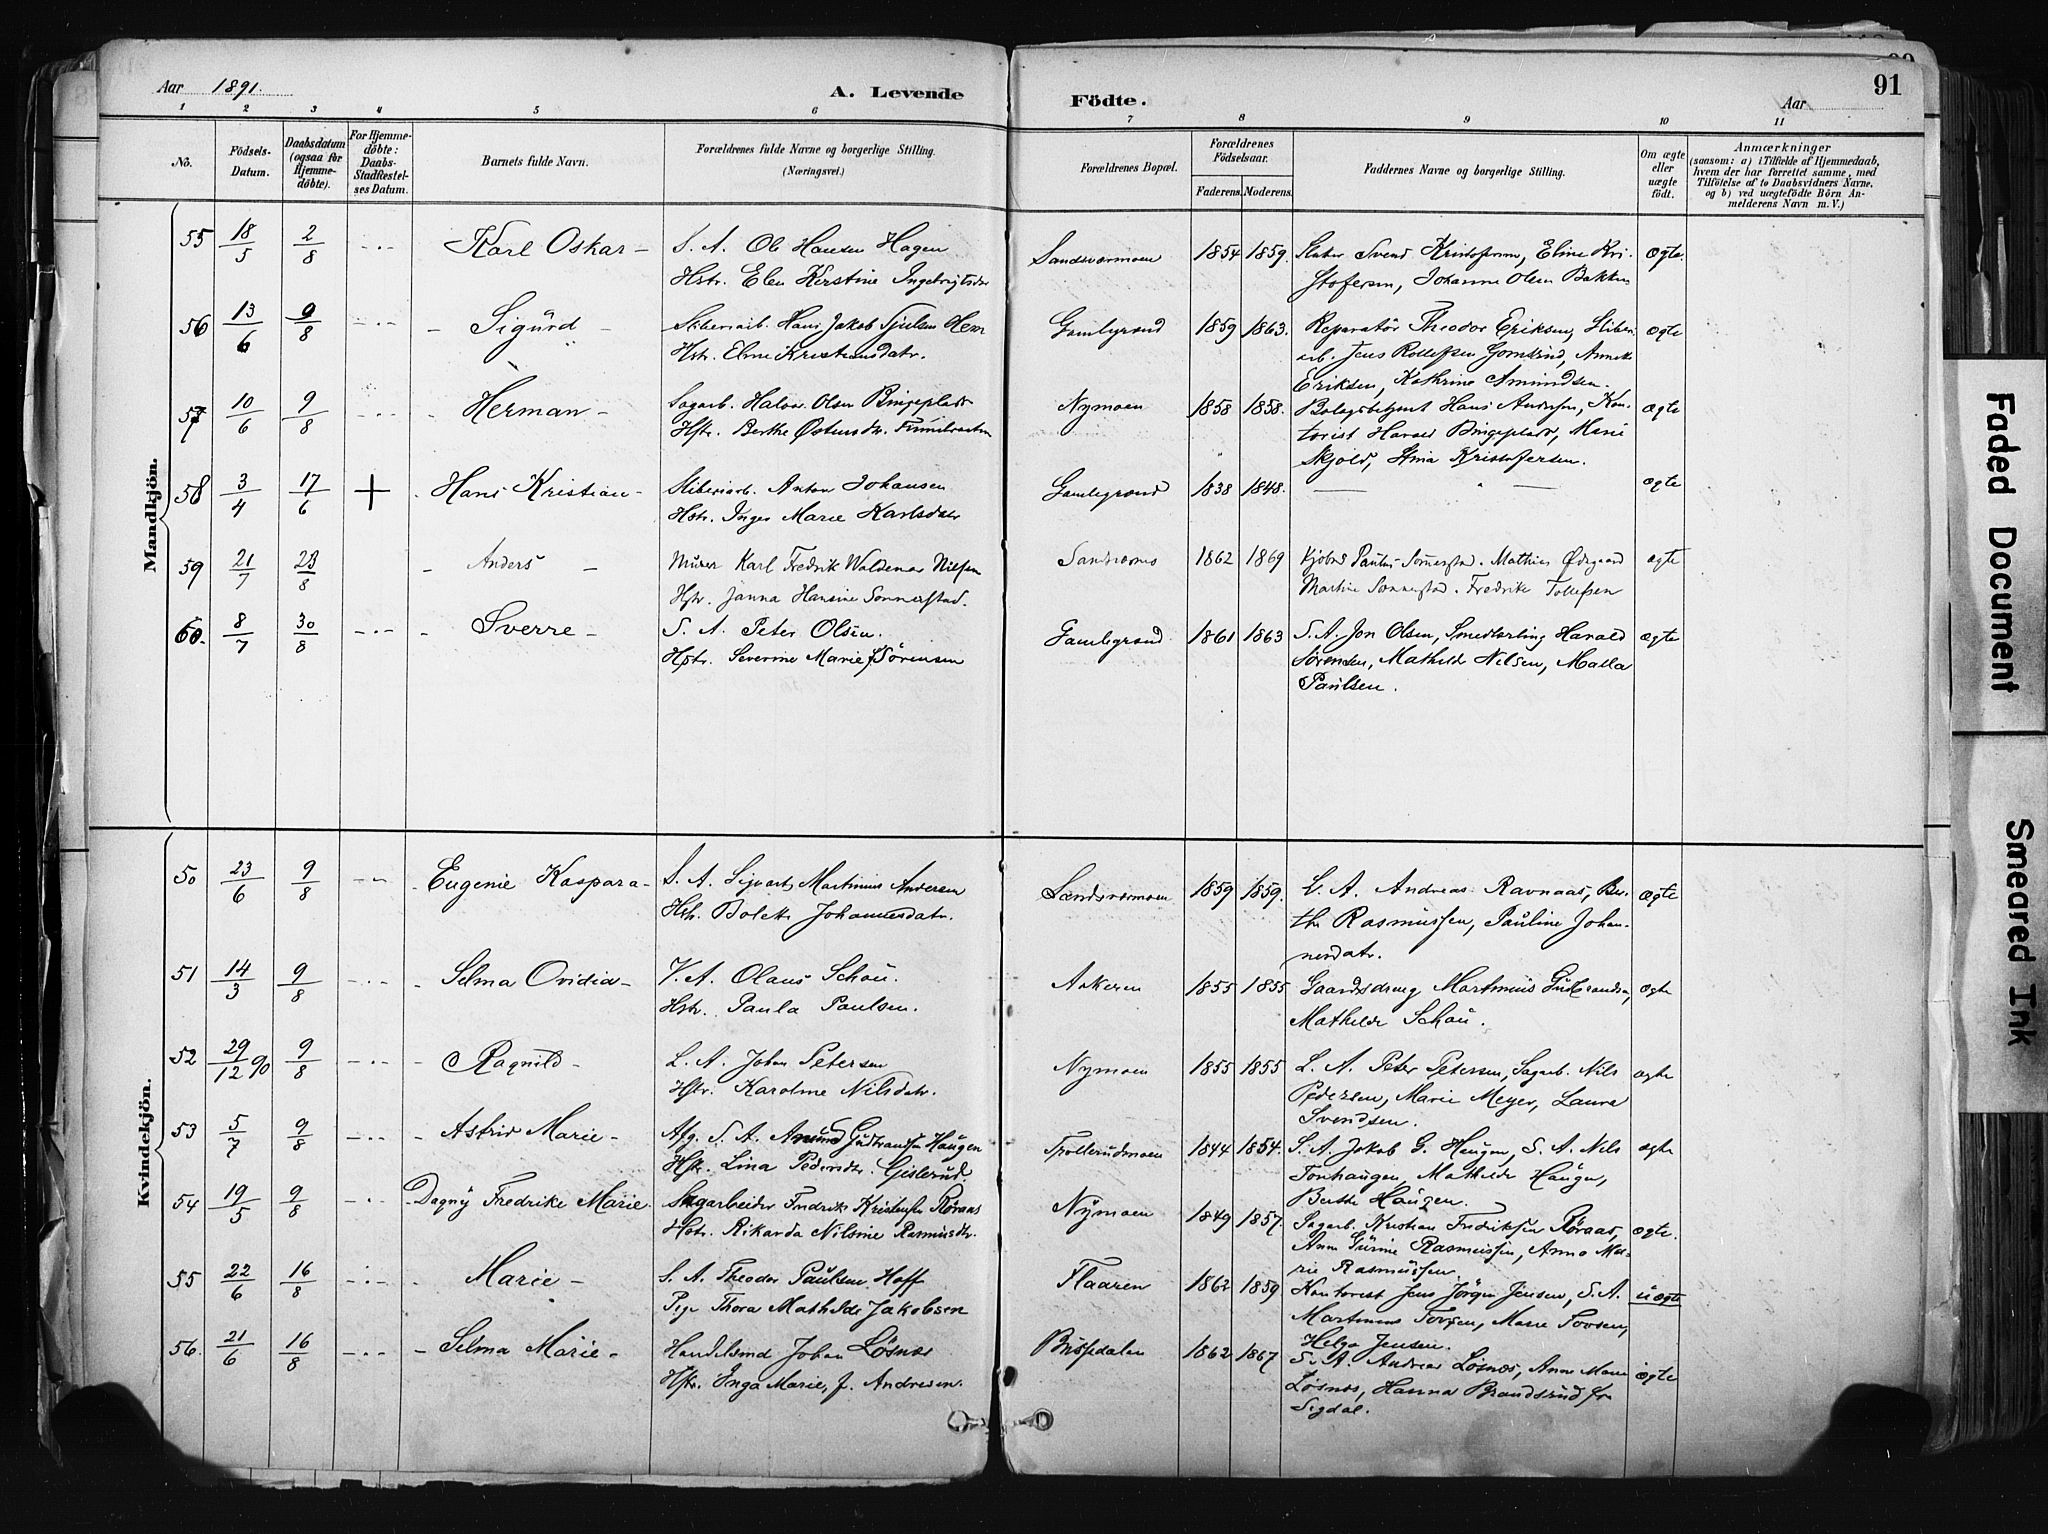 Aar 1891. A. Levende Födte. Aar 91
1 2 3 4 5 6 7 8 9 10 11
No. Födsels-Datum. Daabsdatum (ogsaa for Hjemmedöbte). For Hjemmedöbte: Daabs-Stadfæstelses Datum. Barnets fulde Navn. Forældrenes fulde Navne og borgerlige Stilling. (Næringsvei.) Forældrenes Bopæl. Forældrenes Födselsaar. Faderens. Moderens. Faddernes Navne og borgerlige Stilling. Om ægte eller uægte födt. Anmærkninger (saasom: a) i Tilfælde af Hjemmedaab, hvem der har forrettet samme, med Tilföielse af to Daabsvidners Navne, og b) ved uægtefödte Börn Anmelderens Navn m. V.)
Mandkjön.
55 18/5 2/8 -·- Karl Oskar - S. A. Ole Hansen Hagen Sandsværmoen 1854 1859. Svend Kristofersen, Eline Kri- ægte.
Hstr. Elen Kerstine Ingebrigtsdtr stofersen, Johanne Olsen Bakken
56 13/6 9/8 -·- - Sigurd - Stiberiarb. Hans Jakob Hstr. Eline Kristiansdatr. Gamlegrænd 1859 1863. Reparatör Theodor Eriksen, Stiberi- ægte
arb. Jens Rollefsen Annette
Eriksen, Kathrine Amundsen.
57 10/6 9/8 -·- - Herman - Sagarb. Halvor Olsen Bingeplads Nymoen 1858 1858. Hans Andersen, Kon- ægte
Hstr. Berthe torist Harald Bingeplads, Marie
Skjold, Stina Kristofersen.
58 3/4 17/6 + - Hans Kristian - Stiberiarb. Anton Johansen Gamlegrænd 1838 1848. — " — ægte
Hstr. Inger Marie Karlsdatr
59 21/7 23/8 - Anders - Murer Karl Fredrik Waldemar Nilsen Sandsværms 1862 1869 Paulus Sønnerstad. Mathias Ødegaard ægte
Hstr. Janna Hansine Sønnerstad. Martine Sønnerstad. Fredrikke Tollefsen
60. 8/7 30/8 -·- - Sverre - S. A. Peter Olsen. Gamlegrænd 1861 1863 S. A. Jon Olsen, Smedlærling Harald ægte
Hstr. Severine Marie f. Sörensen Sörensen, Mathilde Nilsen, Malla
Paulsen.
Kvindekjön.
50 23/6 9/8 -·- - Eugenie Kaspara - S. A. Sigvart Martinius Andersen Sandsværmoen 1859 1859. L. A. Andreas Ravnaas, Ber- ægte
Hstr. Bolette Johannesdatr. the Rasmussen, Pauline Johan-
nesdatr.
51 14/3 9/8 -·- - Selma Ovidia - V. A. Olaus Schou. Aakeren 1855 1855 Gaardsdreng Martinius Gulbrandsen, ægte
Hstr. Paula Paulsen. Mathilde Schou.
52 29/12 90 9/8 -·- - Ragnild - L. A. Johan Petersen Nymoen 1855 1855 L. A. Peter Petersen, Sagarb. Nils ægte
Hstr. Karoline Nilsdatr. Pedersen, Marie Meyer, Laura
Svendsen.
53 5/7 9/8 -·- - Astrid Marie - Afg. S. A. Amund Gulbrandsen Haugen 1844 1854. S. A. Jakob G. Haugen, S. A. Nils ægte
Hstr. Lina Pedersdtr. Gislerud. Tonhaugen, Mathilde Haugen,
Berthe Haugen.
54 19/5 9/8 -·- Dagny Fredrike Marie. Sagarbeider Fredrik Kristensen Röraas Nymoen 1849 1857. Sagarb. Kristian Fredriksen Röraas, ægte.
Hstr. Rikarda Nilsine Rasmusdtr. Anna Gurine Rasmussen, Anna Ma-
rie Rasmussen.
55 22/6 16/8 -·- - Marie - S. A. Theodor Paulsen Hoff Flaaren 1862 1859 Kontorist Jens Jörgen Jensen, S. A. uægte
Pige Thora Mathilde Jakobsen Martinius Tovsen, Marie Tovsen,
Helga Jensen.
56. 21/6 16/8 -·- - Selma Marie - Handelsmd Johan Løsnæs Bispedalen 1862 1867 S. A. Andreas Løsnæs, Anne Marie ægte
Hstr. Inga Marie, f. Andresen. Løsnæs, Hanna Brandsrud fra
Sigdal.
Faded Document
Smeared Ink